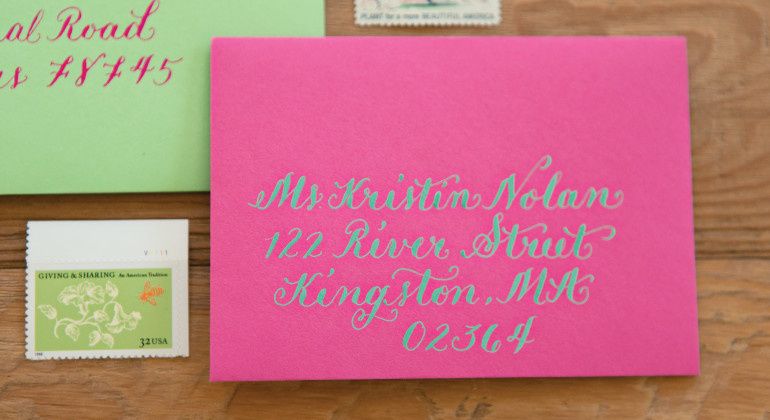 PLANT for a more BEAUTIFUL AMERICA
al Road
s 78745
Ms. Kristin Nolan
122 River Street
Kingston, MA
02364
GIVING & SHARING An American Tradition
32 USA
1998